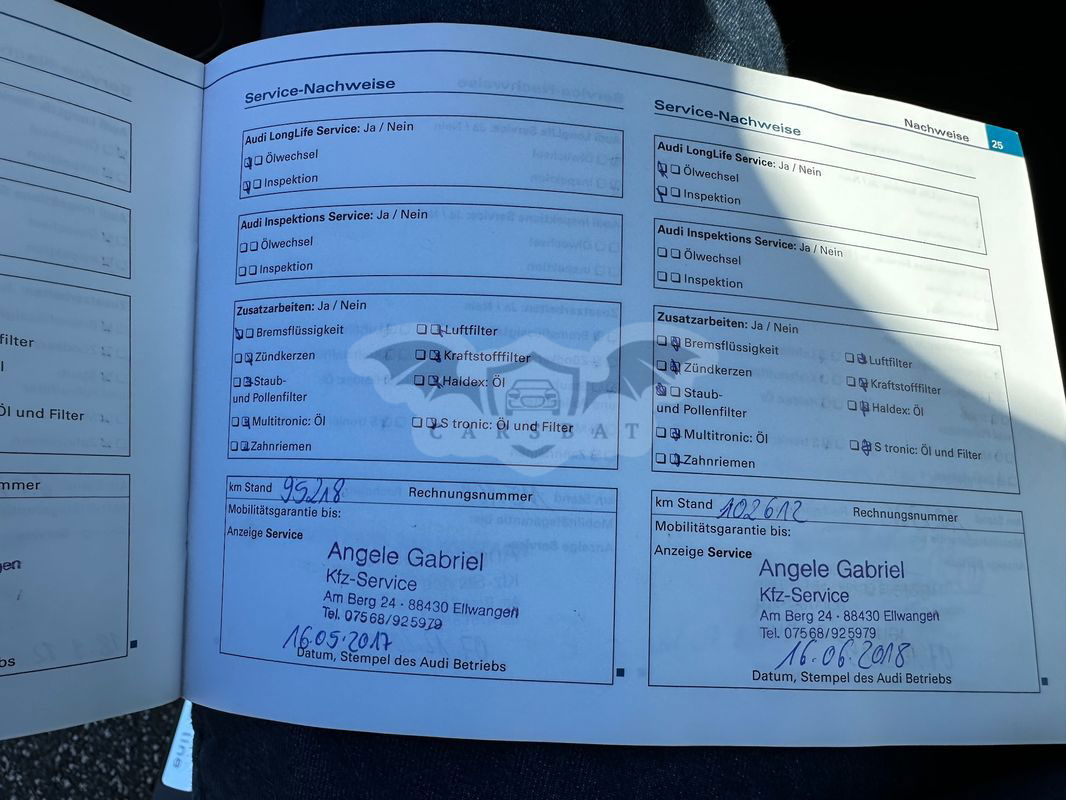 Service-Nachweise
Audi LongLife Service: Ja / Nein
Ölwechsel
Inspektion
Audi Inspektions Service: Ja / Nein
Ölwechsel
Inspektion
Zusatzarbeiten: Ja / Nein
Bremsflüssigkeit
Luftfilter
Zündkerzen
Kraftstofffilter
Staub-
und Pollenfilter
Haldex: Öl
Multitronic: Öl
S tronic: Öl und Filter
Zahnriemen
km Stand 95218 Rechnungsnummer
Mobilitätsgarantie bis:
Anzeige Service
Angele Gabriel
Kfz-Service
Am Berg 24 · 88430 Ellwangen
Tel. 07568/925979
16.05.2017
Datum, Stempel des Audi Betriebs
Nachweise 25
Service-Nachweise
Audi LongLife Service: Ja / Nein
Ölwechsel
Inspektion
Audi Inspektions Service: Ja / Nein
Ölwechsel
Inspektion
Zusatzarbeiten: Ja / Nein
Bremsflüssigkeit
Luftfilter
Zündkerzen
Kraftstofffilter
Staub-
und Pollenfilter
Haldex: Öl
Multitronic: Öl
S tronic: Öl und Filter
Zahnriemen
km Stand 102612 Rechnungsnummer
Mobilitätsgarantie bis:
Anzeige Service
Angele Gabriel
Kfz-Service
Am Berg 24 · 88430 Ellwangen
Tel. 07568/925979
16.06.2018
Datum, Stempel des Audi Betriebs
Öl und Filter
CARSBAT